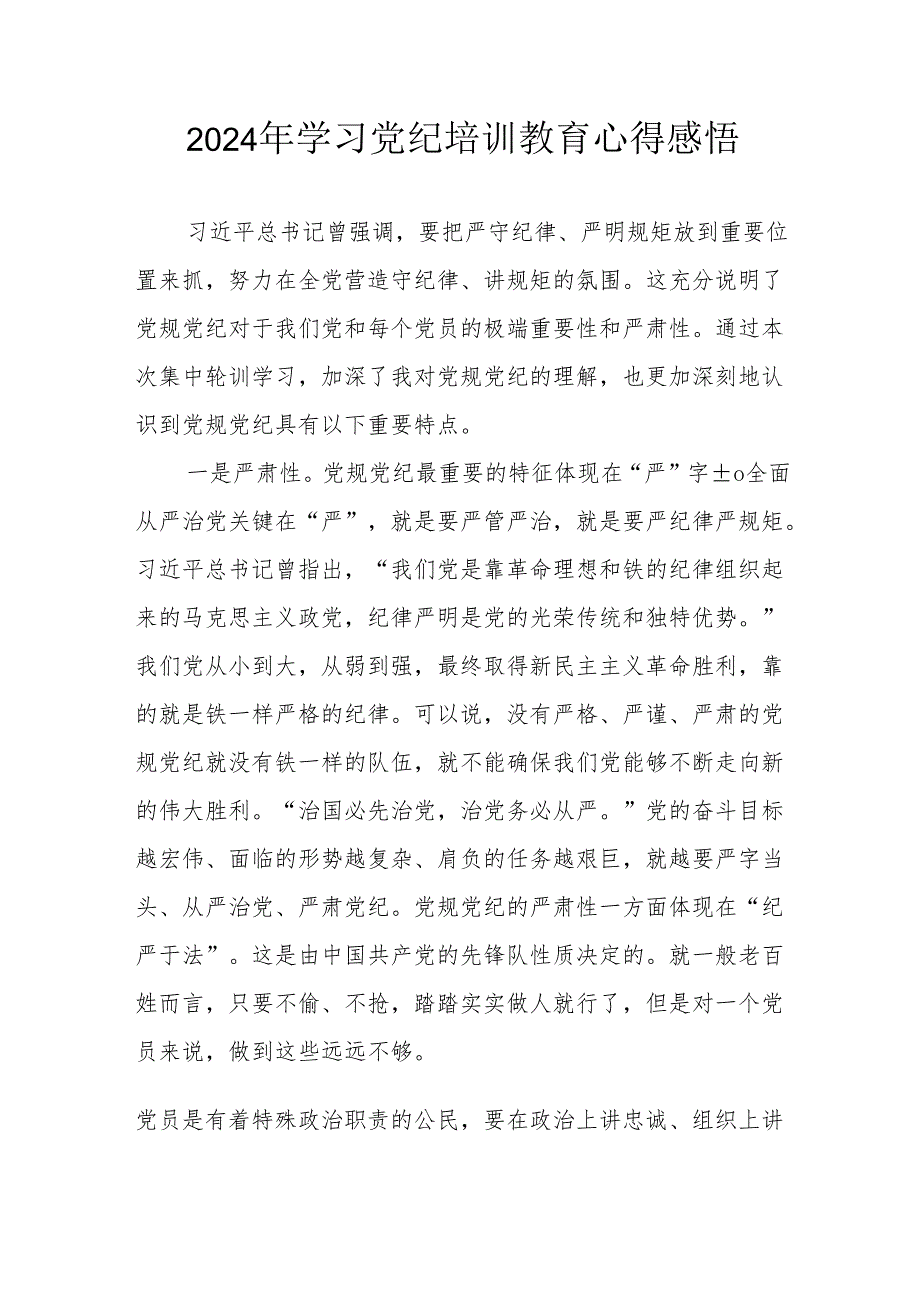 2024年学习党纪培训教育心得感悟
习近平总书记曾强调，要把严守纪律、严明规矩放到重要位
置来抓，努力在全党营造守纪律、讲规矩的氛围。这充分说明了
党规党纪对于我们党和每个党员的极端重要性和严肃性。通过本
次集中轮训学习，加深了我对党规党纪的理解，也更加深刻地认
识到党规党纪具有以下重要特点。
一是严肃性。党规党纪最重要的特征体现在“严”字±o全面
从严治党关键在“严”，就是要严管严治，就是要严纪律严规矩。
习近平总书记曾指出，“我们党是靠革命理想和铁的纪律组织起
来的马克思主义政党，纪律严明是党的光荣传统和独特优势。”
我们党从小到大，从弱到强，最终取得新民主主义革命胜利，靠
的就是铁一样严格的纪律。可以说，没有严格、严谨、严肃的党
规党纪就没有铁一样的队伍，就不能确保我们党能够不断走向新
的伟大胜利。“治国必先治党，治党务必从严。”党的奋斗目标
越宏伟、面临的形势越复杂、肩负的任务越艰巨，就越要严字当
头、从严治党、严肃党纪。党规党纪的严肃性一方面体现在“纪
严于法”。这是由中国共产党的先锋队性质决定的。就一般老百
姓而言，只要不偷、不抢，踏踏实实做人就行了，但是对一个党
员来说，做到这些远远不够。
党员是有着特殊政治职责的公民，要在政治上讲忠诚、组织上讲